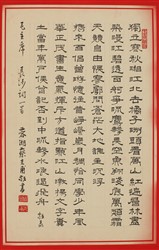 獨立寒秋湘江北去橘子洲頭看萬山紅遍層林盡
染漫江碧透百舸爭流鷹擊長空魚翔淺底萬類霜
天競自由悵寥廓問蒼茫大地誰主沉浮
攜來百侶曾遊憶往昔崢嶸歲月稠恰同學少年風
華正茂書生意氣揮斥方遒指點江山激揚文字糞
土當年萬戶侯曾記否到中流擊水浪遏飛舟
毛主席 長沙詞一首